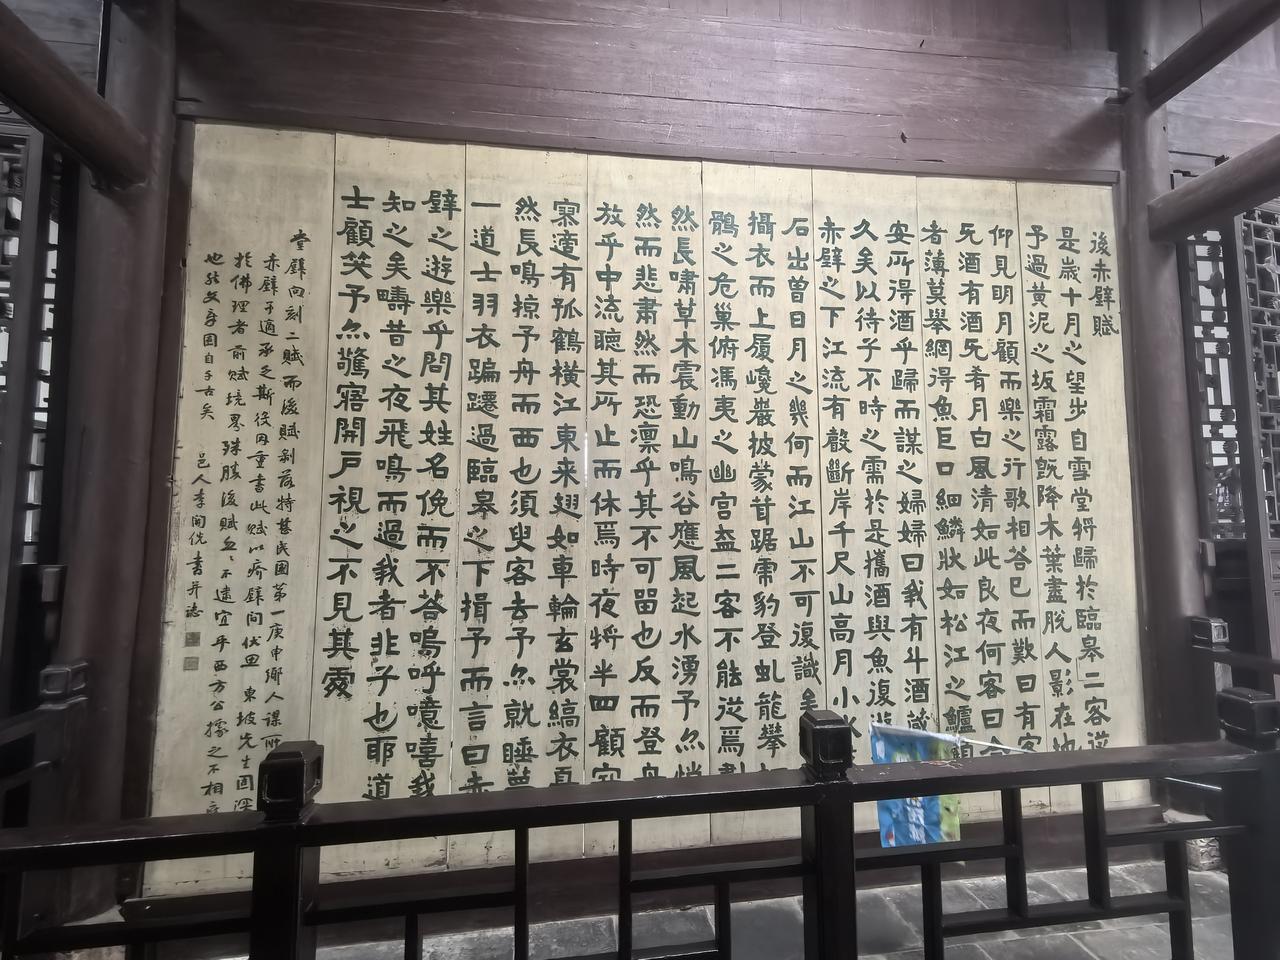 後赤壁賦
是歲十月之望步自雪堂將歸於臨皋二客從
予過黃泥之坂霜露既降木葉盡脫人影在地
仰見明月顧而樂之行歌相答已而歎曰有客
无酒有酒无肴月白風清如此良夜何客曰今
者薄莫舉網得魚巨口細鱗狀如松江之鱸顧
安所得酒乎歸而謀之婦婦曰我有斗酒藏
久矣以待子不時之需於是攜酒與魚復遊
赤壁之下江流有聲斷岸千尺山高月小水
石出曾日月之幾何而江山不可復識矣
攝衣而上履巉巖披蒙茸踞虎豹登虬龍攀
鶻之危巢俯馮夷之幽宮盍二客不能從焉劃
然長嘯草木震動山鳴谷應風起水湧予亦悄
然而悲肅然而恐凛乎其不可畱也反而登舟
放乎中流聽其所止而休焉時夜將半四顧寂
寞適有孤鶴橫江東来翅如車輪玄裳縞衣戛
然長鳴掠予舟而西也須臾客去予亦就睡夢
一道士羽衣蹁躚過臨皋之下揖予而言曰赤
壁之遊樂乎問其姓名俛而不答嗚呼噫嘻我
知之矣疇昔之夜飛鳴而過我者非子也耶道
士顧笑予亦驚寤開戶視之不見其處
堂壁向刻二賦而後賦剝落特甚民國第一庚申鄉人謀所
赤壁予適承乏斯役因重書此賦以
於佛理者前賦境界殊勝後賦 不遠宜乎西方公據之不相
也然文章固自千古矣 邑人李開侁書并誌